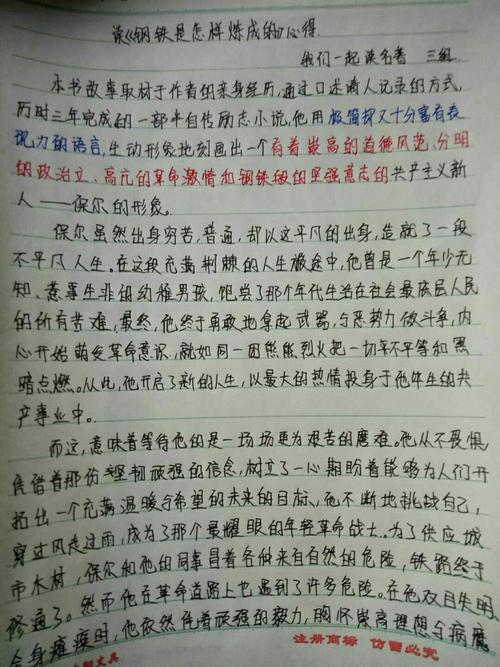 读《钢铁是怎样炼成的》心得
我们一起读名著 三组
本书故事取材于作者的亲身经历,通过口述请人记录的方式,
历时三年完成的一部半自传励志小说,他用极简却又十分富有表
现力的语言,生动形象地刻画出一个有着崇高的道德风范、分明
的政治立、高亢的革命激情和钢铁般的坚强意志的共产主义新
人——保尔的形象。
保尔虽然出身穷苦,普通,却以这平凡的出身,造就了一段
不平凡人生。在这段充满荆棘的人生旅途中,他曾是一个年少无
知、惹事生非的幼稚男孩,饱尝了那个年代生活在社会最底层人民
的所有苦难,最终,他终于勇敢地拿起武器,与恶势力做斗争,内
心开始萌发革命意识,就如同一团熊熊烈火把一切不平等和黑
暗点燃。从此,他开启了新的人生,以最大的热情投身于他毕生的共
产事业中。
而这,意味着等待他的是一场场更为艰苦的磨难。他从不畏惧,
凭借着那份坚韧顽强的信念,树立了一心期盼着能够为人们开
拓出一个充满温暖与希望的未来的目标,他不断地挑战自己,
穿过风走过雨,成为了那个最耀眼的年轻革命战士。为了供应城
市木材,保尔和他的同事冒着各种来自自然的危险,铁路终于
修通了。然而他在革命道路上也遇到了许多危险。在他双目失明,
全身瘫痪时,他依然凭着顽强的毅力,胸怀崇高理想与病魔
文具 注册商标 仿冒必究